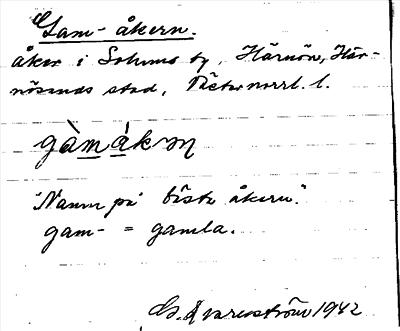 Gam-åkern.
åker i Solums by, Härnön, Här-
nösands stad, Västernorrl. l.
gàmákṇ
"Namn på bästa åkern".
gam- = gamla.
G. Qvarnström 1942